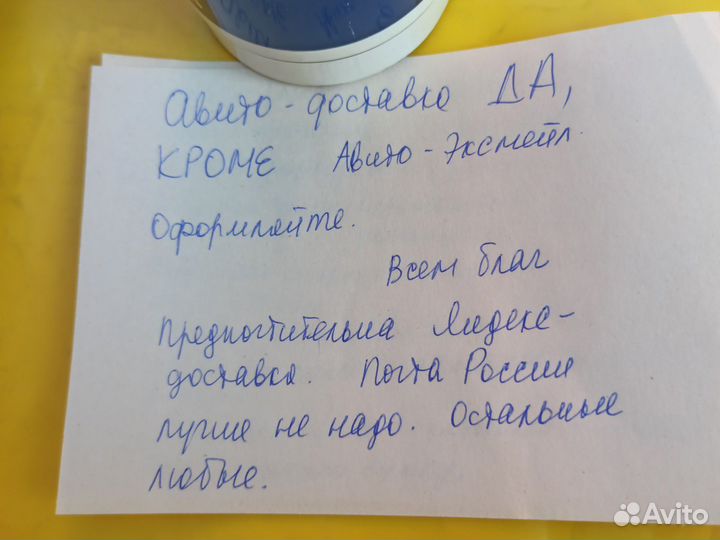 Авито-доставка ДА,
КРОМЕ Авито-Эксмейл.
Оформляйте.
Всем благ
Предпочтительна Яндекс-
доставка. Почта России
лучше не надо. Остальные
любые.
Avito